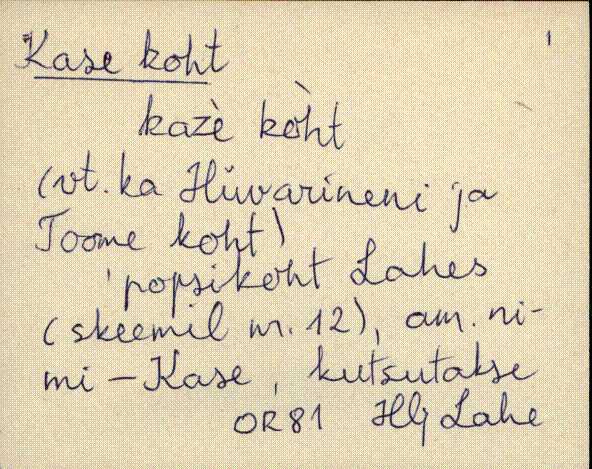 Kase koht 1
kazè kòht
(vt. ka Hüvarineni ja
Toome koht)
popsikoht Lahes
(skeemil nr. 12), am. ni-
mi – Kase, kutsutakse
OR81 Hlj Lahe